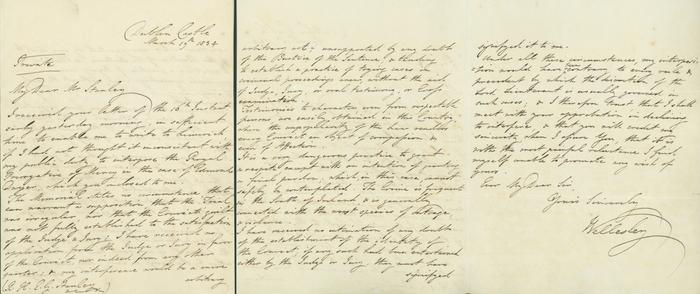 Dublin Castle
March 19th 1834
Private
My Dear Mr Stanley
I received your letter of the 16th Instant
early yesterday morning, in sufficient
time to enable me to write to Limerick
if I had not thought it inconsistent with
my public duty to interpose the Royal
Prerogative of Mercy in the case of Edmund
which you enclosed to me.
The Memorial states no circumstance that
can warrant a supposition that the Trial
was irregular, or that the Convict's guilt
was not fully established to the satisfaction
of the Judge & Jury. I have received no
application from the Judge or Jury in favor
of the Convict nor indeed from any other
quarter; & my interference would be a mere
arbitrary
Stanley
arbitrary act; unsupported by any doubt
of the Justice of the Sentence; & tending
to establish a practice of trying cases in
criminal proceedings anew, without the aid
of Judge, Jury, or oral testimony, or Cross
examination
Testimonies to character even from respectable
persons are easily obtained in this Country,
where the unpopularity of the laws renders
every Convict an object of compassion, &
even of affection.
It is a very dangerous practice to grant
a respite except with an intention of granting
a final pardon, which in this case, cannot
safely be contemplated. The Crime is frequent
in the South of Ireland & is generally
connected with the worst species of outrage,
& violence
I have received no intimation of any doubt
of the establishment of the identity of
the Convict, if any such had been entertained
either by the Judge or Jury, they must have
signifyed
signifyed it to me.
Under all these circumstances my interposi-
tion would have contrary to every rule &
precedent by which the discretion of the
Lord Lieutenant is usually governed in
such cases; & I therefore trust that I shall
meet with your approbation in declining
to interfere, & that you will credit my
sincerity, when I assure You that it is
with the most painful reluctance I find
myself unable to promote any wish of
yours.
Ever My Dear Sir
Yours Sincerely
Wellesley